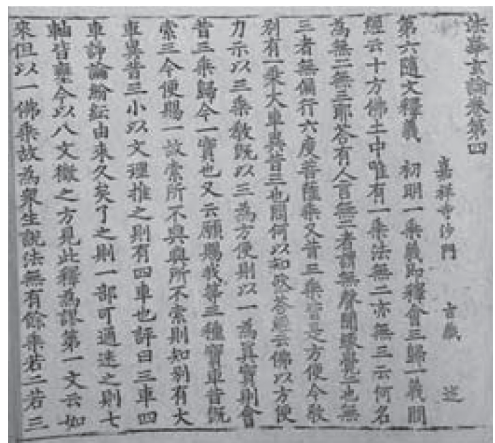 法華玄論卷第四
嘉祥寺沙門 吉藏 迄
第六隨文釋義 初明一乘義即釋會三歸一義問
經云十方佛土中唯有一乘法無二亦無三云何名
為無二無三耶答有人言無二者謂無聲聞緣覺二也無
三者無偏行六度菩薩乘又昔三乘皆是方便今教
別有一乘大車異昔三也問何以知然答經云佛以方便
力示以三乘教既以三為方便則以一為真實則會
昔三乘歸今一實也又云願賜我等三種寶車昔既
索三今便賜一故索所不與與所不索則知別有大
車異昔三小以文理推之則有四車也評曰三車四
車諍論紛紜由來久矣了之則一部可通迷之則七
軸皆壅今以八文徵之方見此釋為謬第一文云如
來但以一佛乘故為眾生說法無有餘乘若二若三